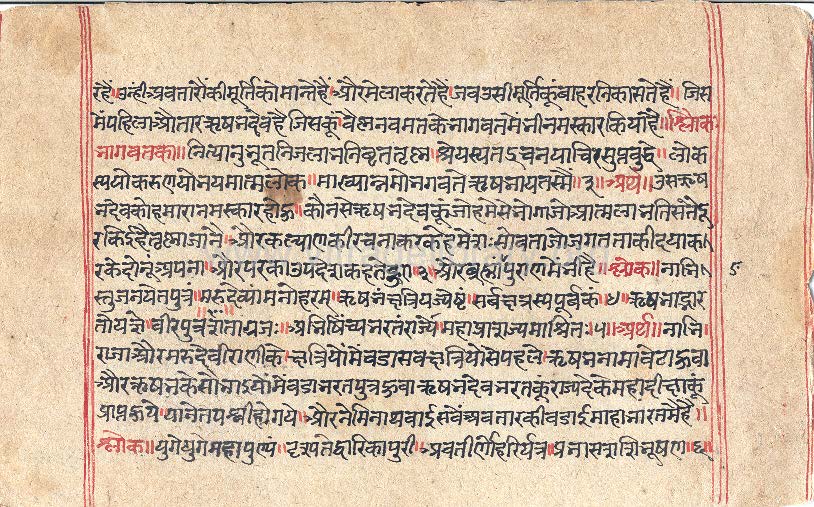 रहैं॥उन्हीं अवतारोंकी मूर्तिको मान्तेहैं॥औरमेलाकरतेहैंजबउसीमूर्तिकूंबाहरनिकासतेहैं॥जिस
मेंपहिलाऔतारऋषभदेवहैजिसकूंवैष्णवमतकेभागवतमेंभीनमस्कारकियाहै॥श्लोक
भागवतका॥नित्यानुभूतनिजलाभनिवृत्ततृष्णः श्रेयस्यतऽचनयाचिरसुप्तबुद्धेः लोक
स्ययोकरुणयोभयमात्मलोक॥माख्यान्नमोभगवते ऋषभायतस्मै॥३॥अर्थ॥उसऋष
भदेवकोहमारानमस्कारहोऊ॥कौनसेऋषभदेवकूंजोहमेसेभोगाजोआत्मलाभतिसंनेदू
रकिईहैतृष्णाजानै॥औरकल्याणकीरचनाकरकेहैमेरा॥सोवताजोजगतताकीदयाका
रकेदोनूं॥अपना॥औरपरकाउपदेशकहतेहुआ॥औरब्रह्मापुराणमेंभीहै॥श्लोक॥नाभि। ५
स्तुजनयेतपुत्रं॥मरुदेव्यामनोहरम॥ऋषभंक्षत्रियज्येष्टं॥सर्वक्षत्रस्यपूर्वकं॥४॥ऋषभाद्भार
तोयज्ञे॥वीरपुत्रशताग्रजः॥अभिषिंच्यभरतंराज्ये॥महाप्राव्राज्यमाश्रितः॥५॥अर्थ॥नाभि।
राजाऔरमरुदेवीराणीके॥क्षत्रियोंमेंबडासबक्षत्रियोंसेपहले॥ऋषभनामाबेटाहुवा
औरऋषभकेसौभाऽयोंमेंबडाभरतपुत्रहुवा॥ऋषभदेवभरतकूंराज्यदेकेमहादीक्षाकूं
प्राप्तभये॥यानेतपश्वीहोगये॥औरनेमिनाथबाईसवेंअवतारकीबडाईमाहाभारतमेंहै॥
श्लोक॥युगेयुगेमहापुण्यं॥दृश्यतेद्वारिकापुरी॥अवतीर्णोहरिर्यत्र॥प्रभासशशिभूषण॥६॥